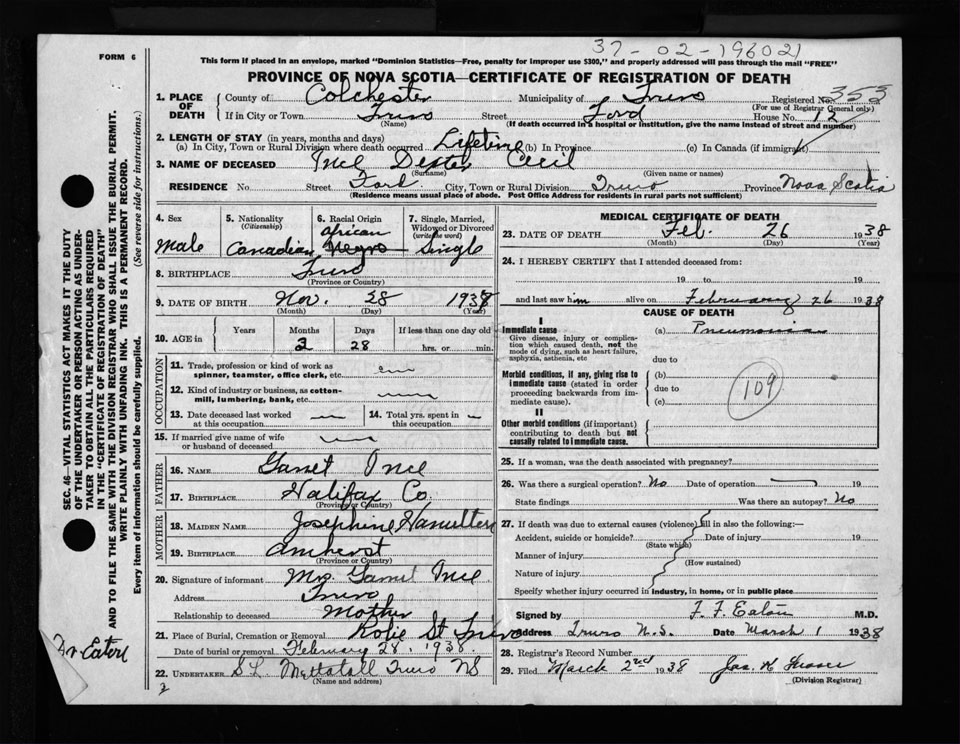 37-02-196021
FORM 6
This form if placed in an envelope, marked "Dominion Statistics—Free, penalty for improper use $300," and properly addressed will pass through the mail "FREE"
PROVINCE OF NOVA SCOTIA—CERTIFICATE OF REGISTRATION OF DEATH
1. PLACE OF DEATH
County of Colchester Municipality of Truro Registered No. 353
(For use of Registrar General only)
If in City or Town Truro Street Ford House No. 12
(Name) (If death occurred in a hospital or institution, give the name instead of street and number)
2. LENGTH OF STAY (in years, months and days)
(a) In City, Town or Rural Division where death occurred Lifetime (b) In Province (c) In Canada (if immigrant)
3. NAME OF DECEASED Ince Dexter Cecil
(Surname) (Given name or names)
RESIDENCE No. Street Ford City, Town or Rural Division Truro Province Nova Scotia
(Residence means usual place of abode. Post Office Address for residents in rural parts not sufficient)
4. Sex Male
5. Nationality (Citizenship) Canadian
6. Racial Origin African Negro
7. Single, Married, Widowed or Divorced (write the word) Single
8. BIRTHPLACE Truro
(Province or Country)
9. DATE OF BIRTH Nov. 28 1938
(Month) (Day) (Year)
10. AGE in Years Months 3 Days 28 If less than one day old hrs. or min.
OCCUPATION
11. Trade, profession or kind of work as spinner, teamster, office clerk, etc.
12. Kind of industry or business, as cotton-mill, lumbering, bank, etc.
13. Date deceased last worked at this occupation
14. Total yrs. spent in this occupation
15. If married give name of wife or husband of deceased
FATHER
16. NAME Garnet Ince
17. BIRTHPLACE Halifax Co.
(Province or Country)
MOTHER
18. MAIDEN NAME Josephine Hamilton
19. BIRTHPLACE Amherst
(Province or Country)
20. Signature of informant Mrs. Garnet Ince
Address Truro
Relationship to deceased Mother
21. Place of Burial, Cremation or Removal St Truro
Date of burial or removal February 28, 1938.
22. UNDERTAKER Truro NS
(Name and address)
MEDICAL CERTIFICATE OF DEATH
23. DATE OF DEATH Feb. 26 1938
(Month) (Day) (Year)
24. I HEREBY CERTIFY that I attended deceased from:
19 to 19
and last saw him alive on February 26 1938
CAUSE OF DEATH
I
Immediate cause (a) Pneumonia
Give disease, injury or complication which caused death, not the mode of dying, such as heart failure, asphyxia, asthenia, etc
due to
Morbid conditions, if any, giving rise to immediate cause (stated in order proceeding backwards from immediate cause).
(b)
due to
(c)
109
II
Other morbid conditions (if important) contributing to death but not causally related to immediate cause.
25. If a woman, was the death associated with pregnancy?
26. Was there a surgical operation? No Date of operation 19
State findings Was there an autopsy? No
27. If death was due to external causes (violence) fill in also the following:—
Accident, suicide or homicide? Date of injury 19
(State which)
Manner of injury
(How sustained)
Nature of injury
Specify whether injury occurred in industry, in home, or in public place
Signed by F. F. Eaton M.D.
Address Truro N.S. Date March 1 1938
28. Registrar's Record Number
29. Filed March 2nd 1938
(Division Registrar)
SEC. 46—VITAL STATISTICS ACT MAKES IT THE DUTY OF THE UNDERTAKER OR PERSON ACTING AS UNDERTAKER TO OBTAIN ALL THE PARTICULARS REQUIRED IN THE "CERTIFICATE OF REGISTRATION OF DEATH" AND TO FILE THE SAME WITH THE DIVISION REGISTRAR WHO SHALL ISSUE THE BURIAL PERMIT.
WRITE PLAINLY WITH UNFADING INK. THIS IS A PERMANENT RECORD.
Every item of information should be carefully supplied. (See reverse side for instructions.)
Dr Eaton